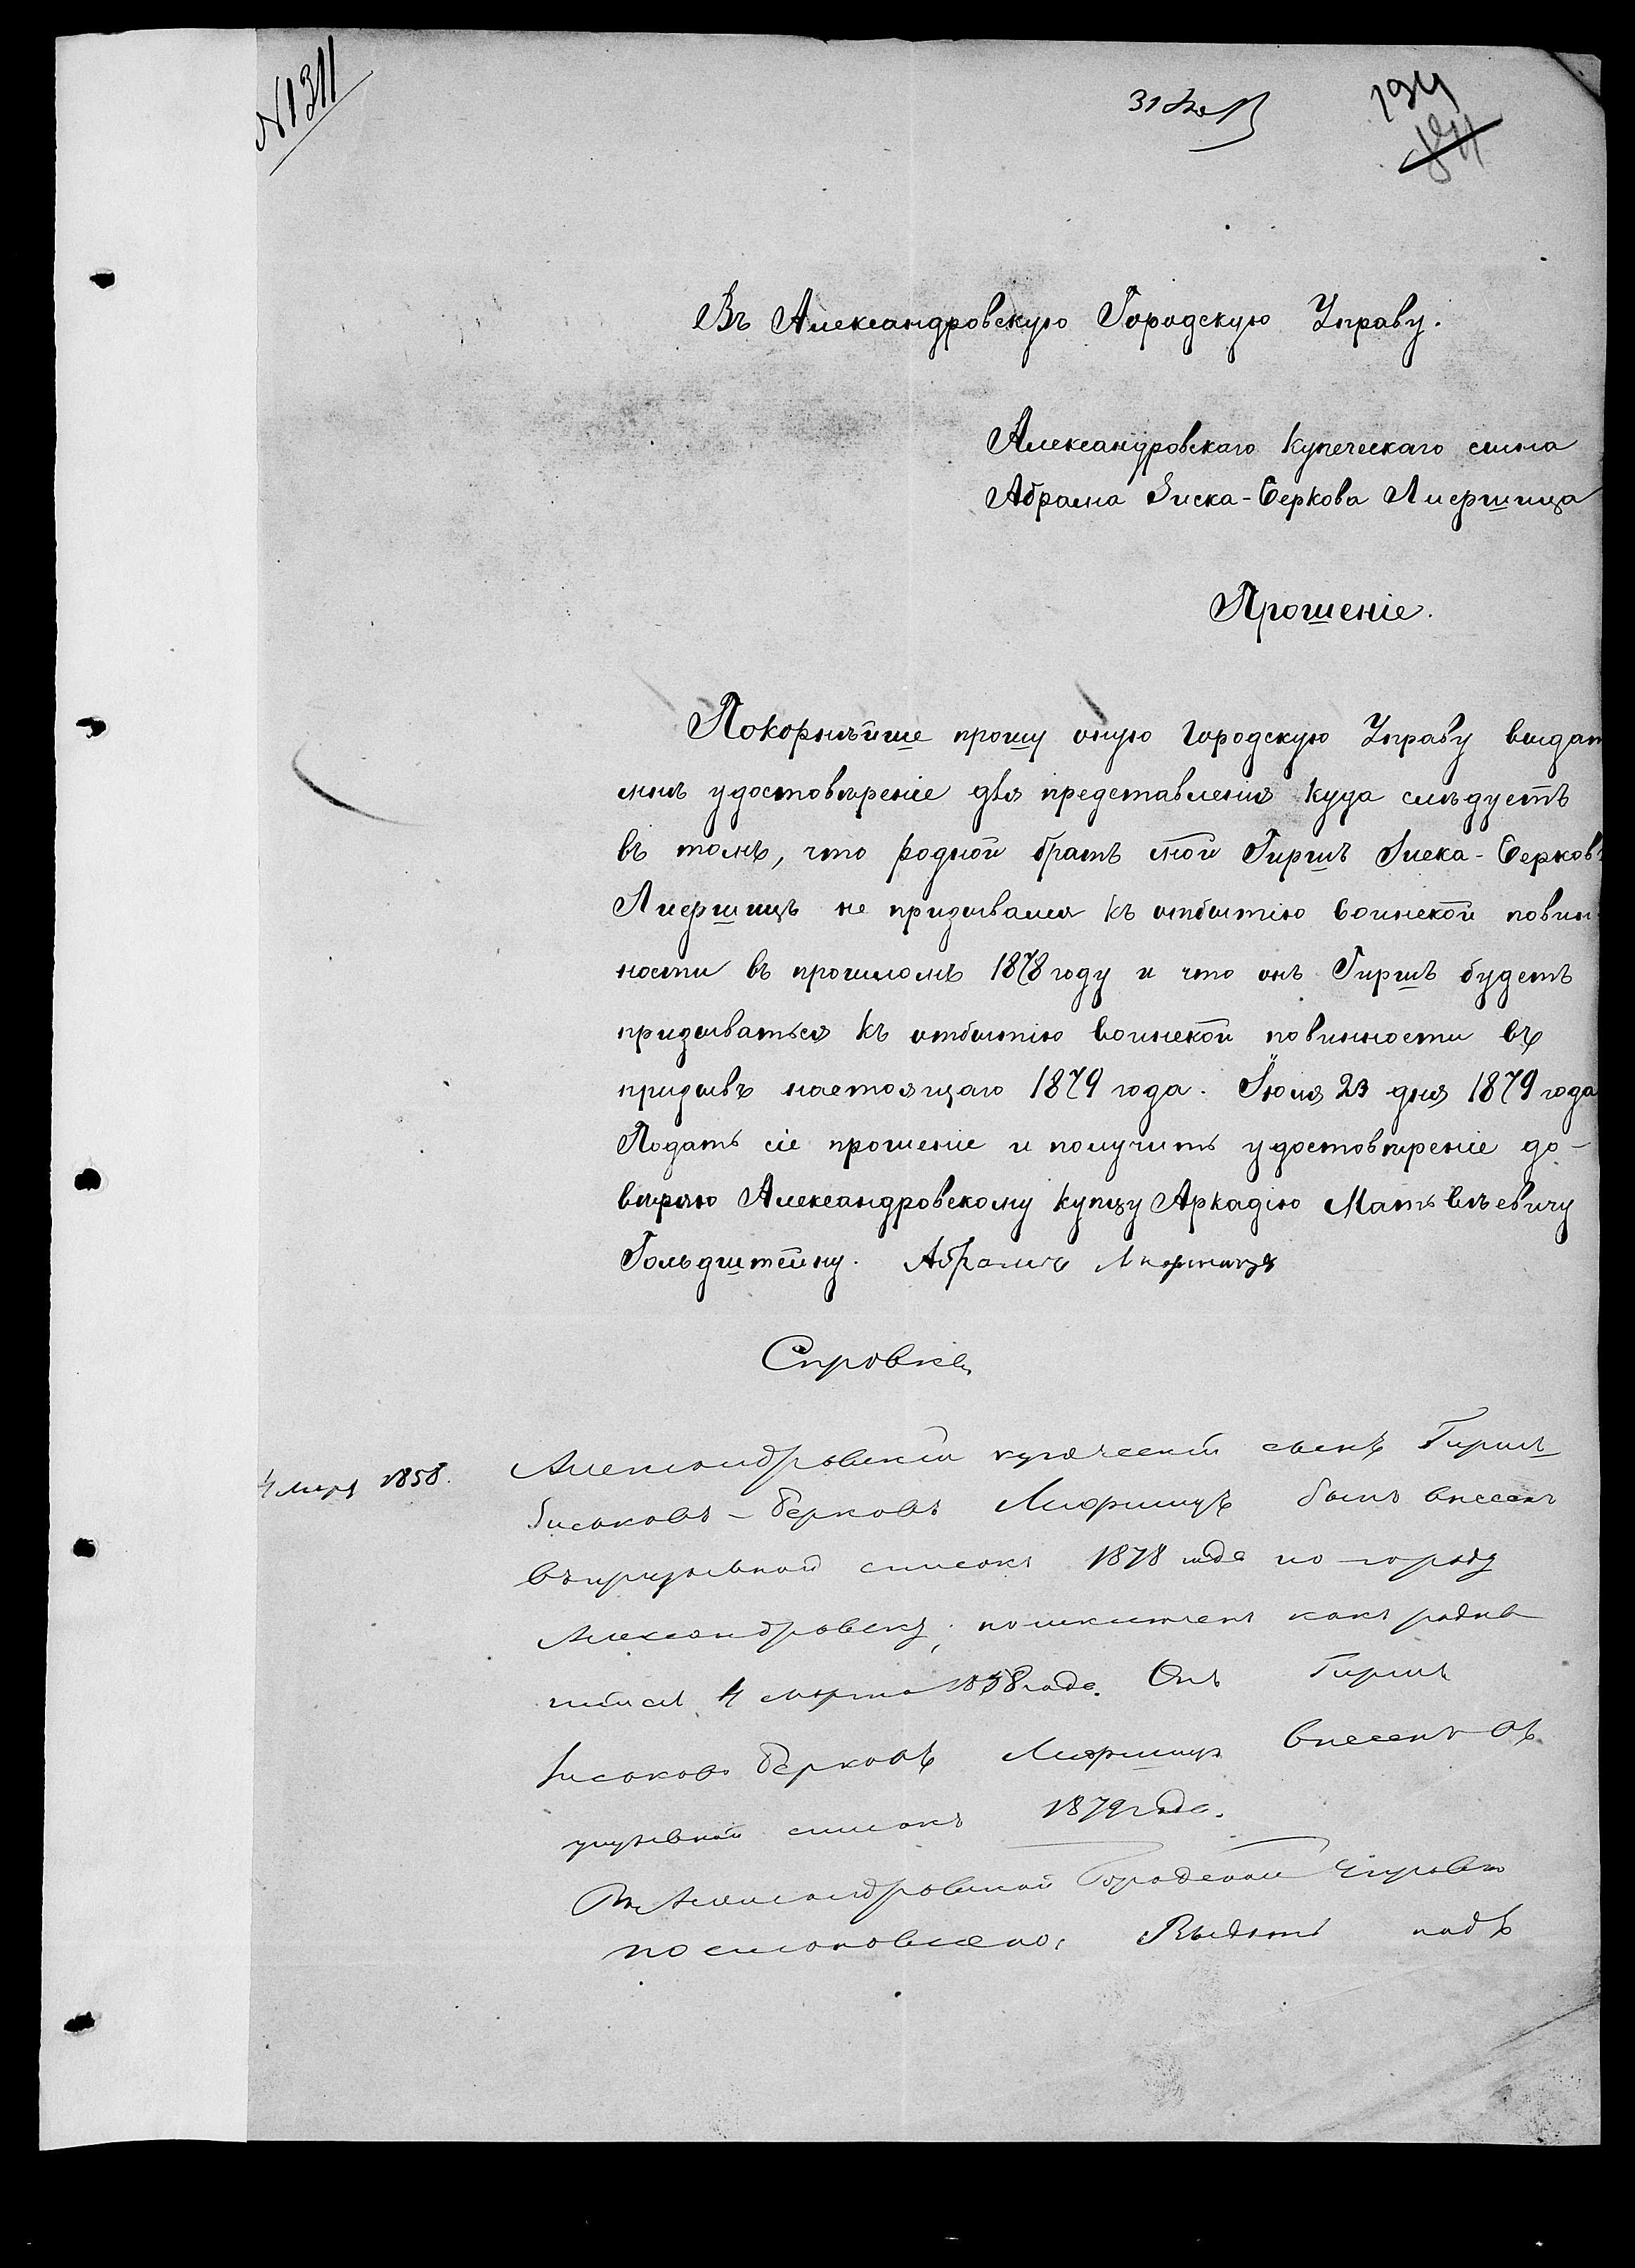 N 1311
31
194
Въ Александровскую Городскую Управу.
Александровскаго купеческаго сына
Абрама Зиска-Беркова Лифшица
Прошеніе.
Покорнѣйше прошу оную Городскую Управу выдат
мнѣ удостовѣреніе для представленія куда слѣдуетъ
въ томъ, что родной братъ мой Гиршъ Зиска-Берковъ
Лифшицъ не призывался къ отбытію воинской повин-
ности въ прошломъ 1878 году и что онъ Гиршъ будетъ
призываться къ отбытію воинской повинности въ
призывъ настоящаго 1879 года. Іюля 23 дня 1879 года
Подать сіе прошеніе и получить удостовѣреніе до-
вѣряю Александровскому купцу Аркадію Матвѣевичу
Гольдштейну. Абрамъ Лифшицъ
Справка
4 мар 1858.
Александровскій купеческій сынъ Гиршъ
Зиськовъ-Берковъ Лифшицъ былъ внесенъ
въ призывной списокъ 1878 года по городу
Александровску, какъ родив
шійся 4 марта 1858 года. Онъ Гиршъ
Зиськовъ Берковъ Лифшицъ внесенъ въ
призывной списокъ 1879 года.
Въ Александровской Городской Управѣ
постановлено: Выдать